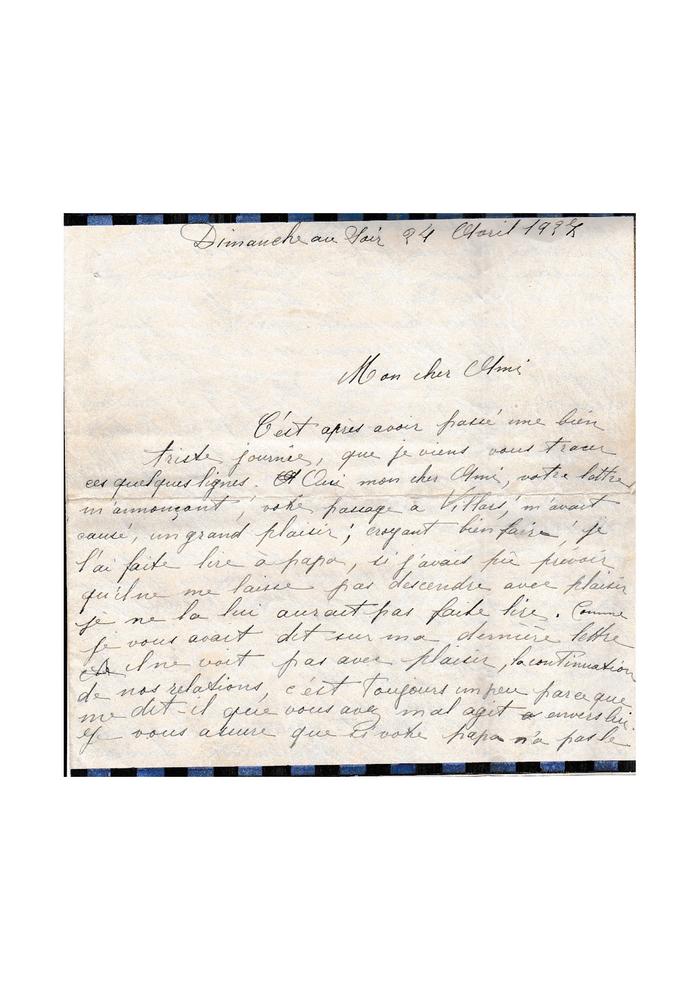 Dimanche au Soir 24 Avril 192
Mon cher Ami
C'est apres avoir passé une bien
triste journée, que je viens vous tracer
ces quelques lignes. Oui mon cher Ami, votre lettre,
m'annonçant, votre passage a Villars, m'avait
causé, un grand plaisir; croyant bien faire, je
l'ai faite lire à papa, si j'avais pù prévoir,
qu'ilne me laisse pas descendre avec plaisir
je ne la lui aurait pas faite lire. Comme
je vous avait dit sur ma dernière lettre
ilne voit pas avec plaisir, la continuation
de nos relations, c'est toujours un peu parce que
me dit-il que vous avez mal agit envers lui.
Je vous assure que si votre papa n'a pas le